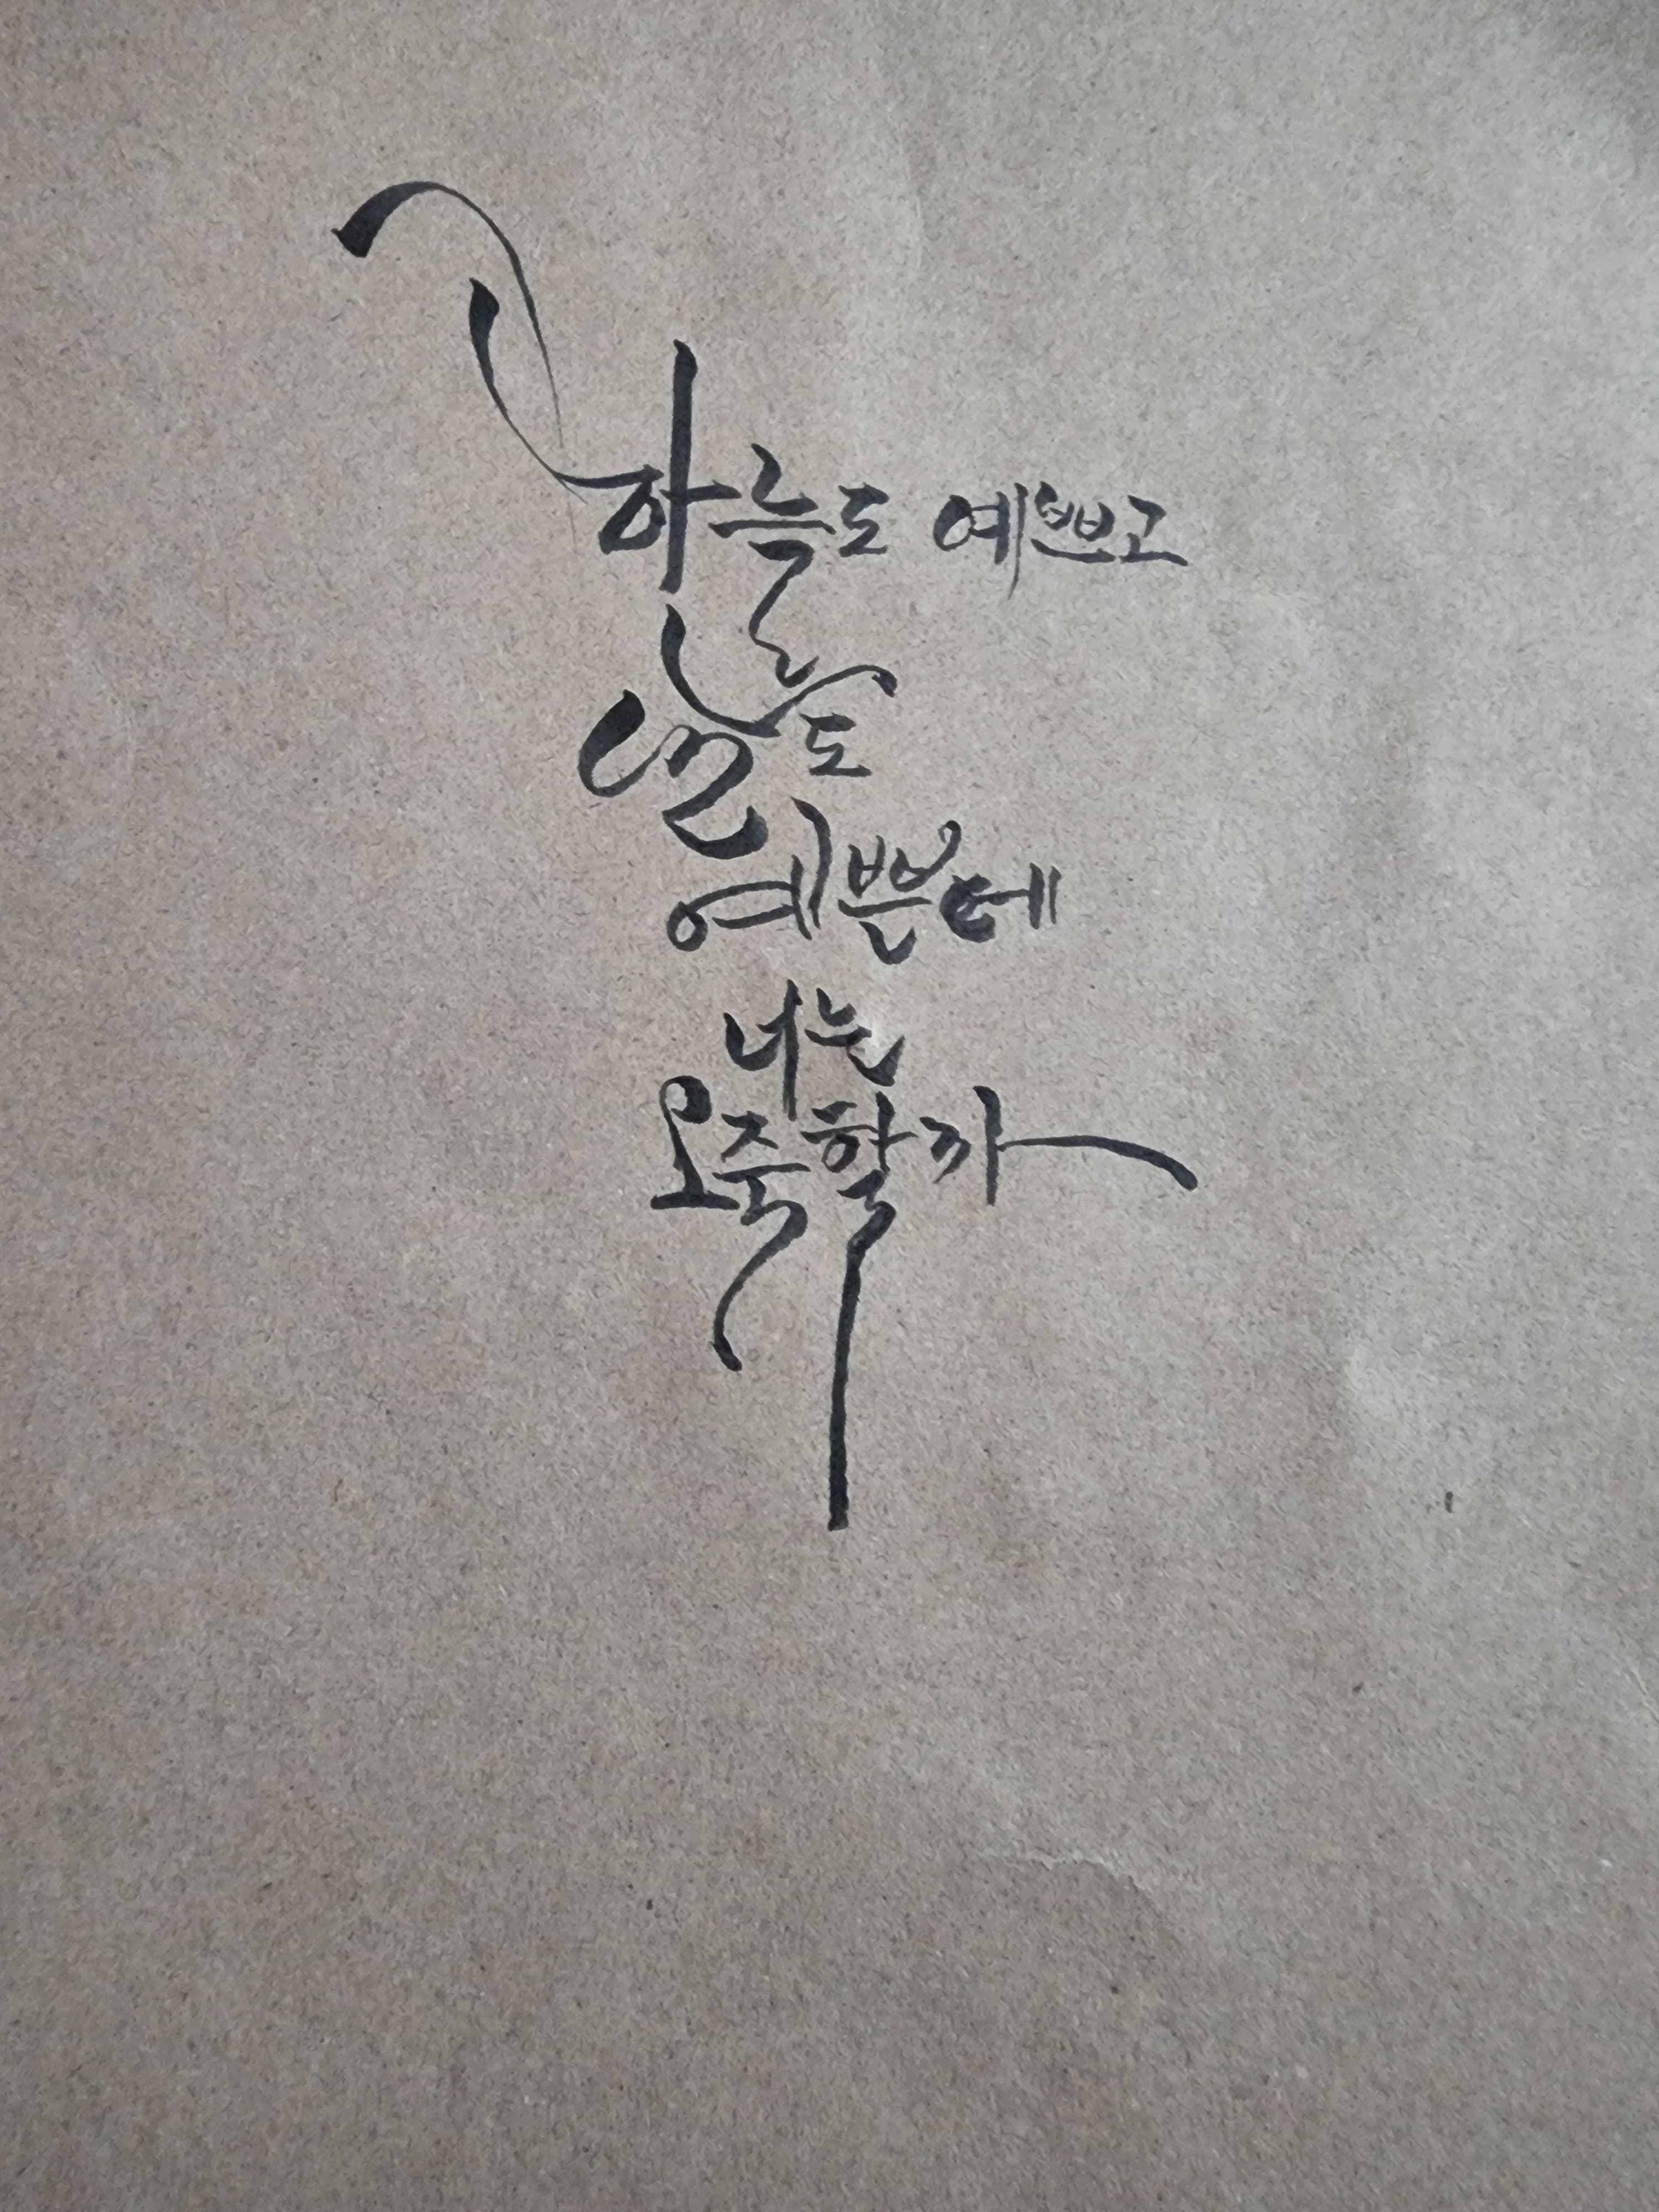 하늘도 예쁘고
날도
예쁜데
너는
오죽할까